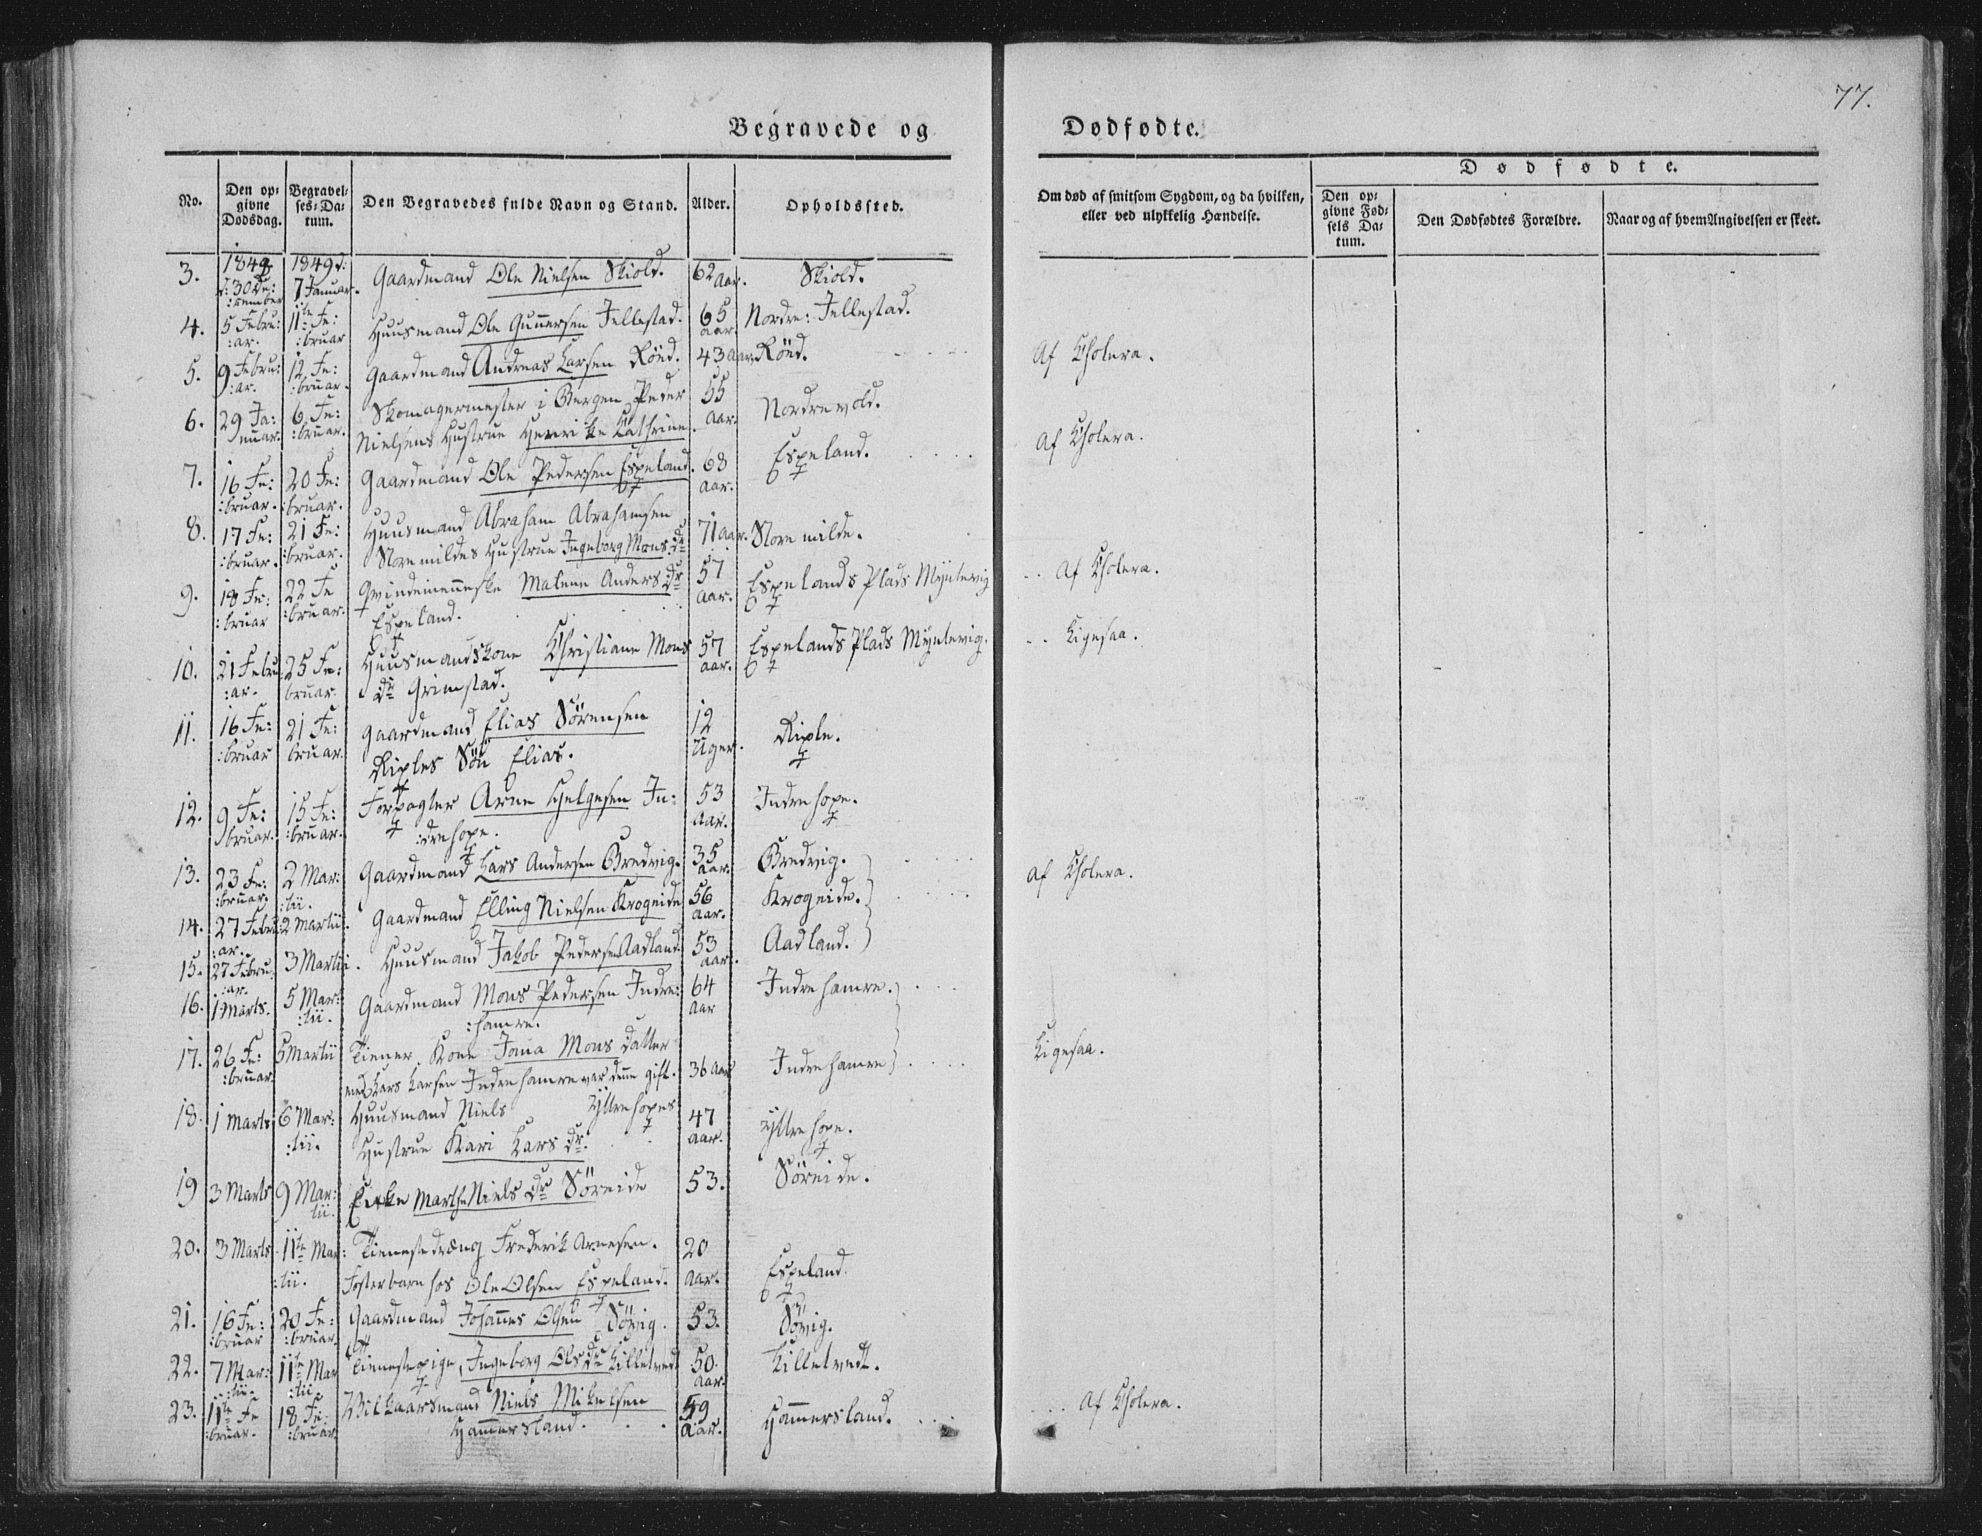 77.
Begravede og Dødfødte.
No.
Den op-
givne
Dødsdag.
Begravel-
ses-Da-
tum.
Den Begravedes fulde Navn og Stand.
Alder.
Opholdssted.
Om død af smitsom Sygdom, og da hvilken,
eller ved ulykkelig Hændelse.
Dødfødte.
Den op-
givne Fød-
sels Da-
tum.
Den Dødfødtes Forældre.
Naar og af hvem Angivelsen er skeet.
3. 1848 d: 30 De:cember 1849 d: 7 Januar. Gaardmand Ole Nielsen Skiold. 62 Aar. Skiold.
4. 5 Febru:ar. 11te Fe:bruar Huusmand Ole Gunnersen Jellestad. 65 aar. Nordre: Jellestad.
5. 9 Febru:ar. 12 Fe:bruar. Gaardmand Andreas Larsen Rönd. 43 Aar. Rönd. Af Cholera.
6. 29 Ja:nuar. 6 Fe:bruar. Skomagermester i Bergen Peder
Nielsens Hustrue Henrikke Cathrine. 55 Aar. Nordrevold.
7. 16 Fe:bruar. 20 Fe:bruar. Gaardmand Ole Pedersen Espeland. 68 aar. Espeland. Af Cholera.
8. 17 Fe:bruar. 21 Fe:bruar. Huusmand Abraham Abrahamsen
Storemildes Hustrue Ingeborg Mons Dr 71 aar. Store milde.
9. 18 Fe:bruar 22 Fe:bruar. Qvindemenneske Malene Anders Dr
Espeland. 57 aar. Espelands Plads Myntevig Af Cholera.
10. 21 Febru:ar. 25 Fe:bruar. Huusmandskone Christiane Mons
Dr Grimstad. 57 aar. Espelands Plads Myntevig. Ligesaa.
11. 16 Fe:bruar 21 Fe:bruar. Gaardmand Elias Sörensen
Riples Sön Elias. 12 Uger. Riple.
12. 9 Fe:bruar. 15 Fe:bruar. Forpagter Arne Helgesen In:
:drehope. 53 aar. Indrehope.
13. 23 Fe:bruar. 2 Mar:tii. Gaardmand Lars Andersen Bredvig. 35 Aar. Bredvig.
14. 27 Febru:ar. 2 Martii. Gaardmand Elling Nielsen Krogeide 56 aar. Krogeide. af Cholera.
15. 27 Febru:ar. 3 Martii. Huusmand Jakob Pedersen Aadland. 53 aar. Aadland.
16. 1 Marts. 5 Mar:tii. Gaardmand Mons Pedersen Indre:
:hamre. 64 Aar Indrehamre.
17. 26 Fe:bruar. 5 Martii Tiener Kone Mons Datter
med Lars Larsen Indrehamre var denne gift. 36 Aar Indrehamre Ligesaa.
18. 1 Marts 6 Mar:tii. Huusmand Niels Yttrehopes
Hustrue Kari Lars Dr. 47 aar. Yttrehope.
19 3 Marts 9 Mar:tii. Enke Marthe Niels Dr Söreide 53. Söreide.
20. 3 Marts 11te Mar:tii. Tienestedræng Frederik Arnesen.
Fosterbarn hos Ole Olsen Espeland. 20 Aar. Espeland.
21. 16 Fe:bruar 20 Fe:bruar. Gaardmand Johannes Olsen Sövig. 53. Sövig.
22. 7 Mar:tii. 11te Mar:tii Tienestepige, Ingeborg Ols Dr Lilletvedt 50. Aar. Lilletvedt.
23. 11te Fe:bruar. 18 Fe:bruar. Vilkaarsmand Niels Mikelsen
Hammersland. 59 aar. Hammersland. Af Cholera.